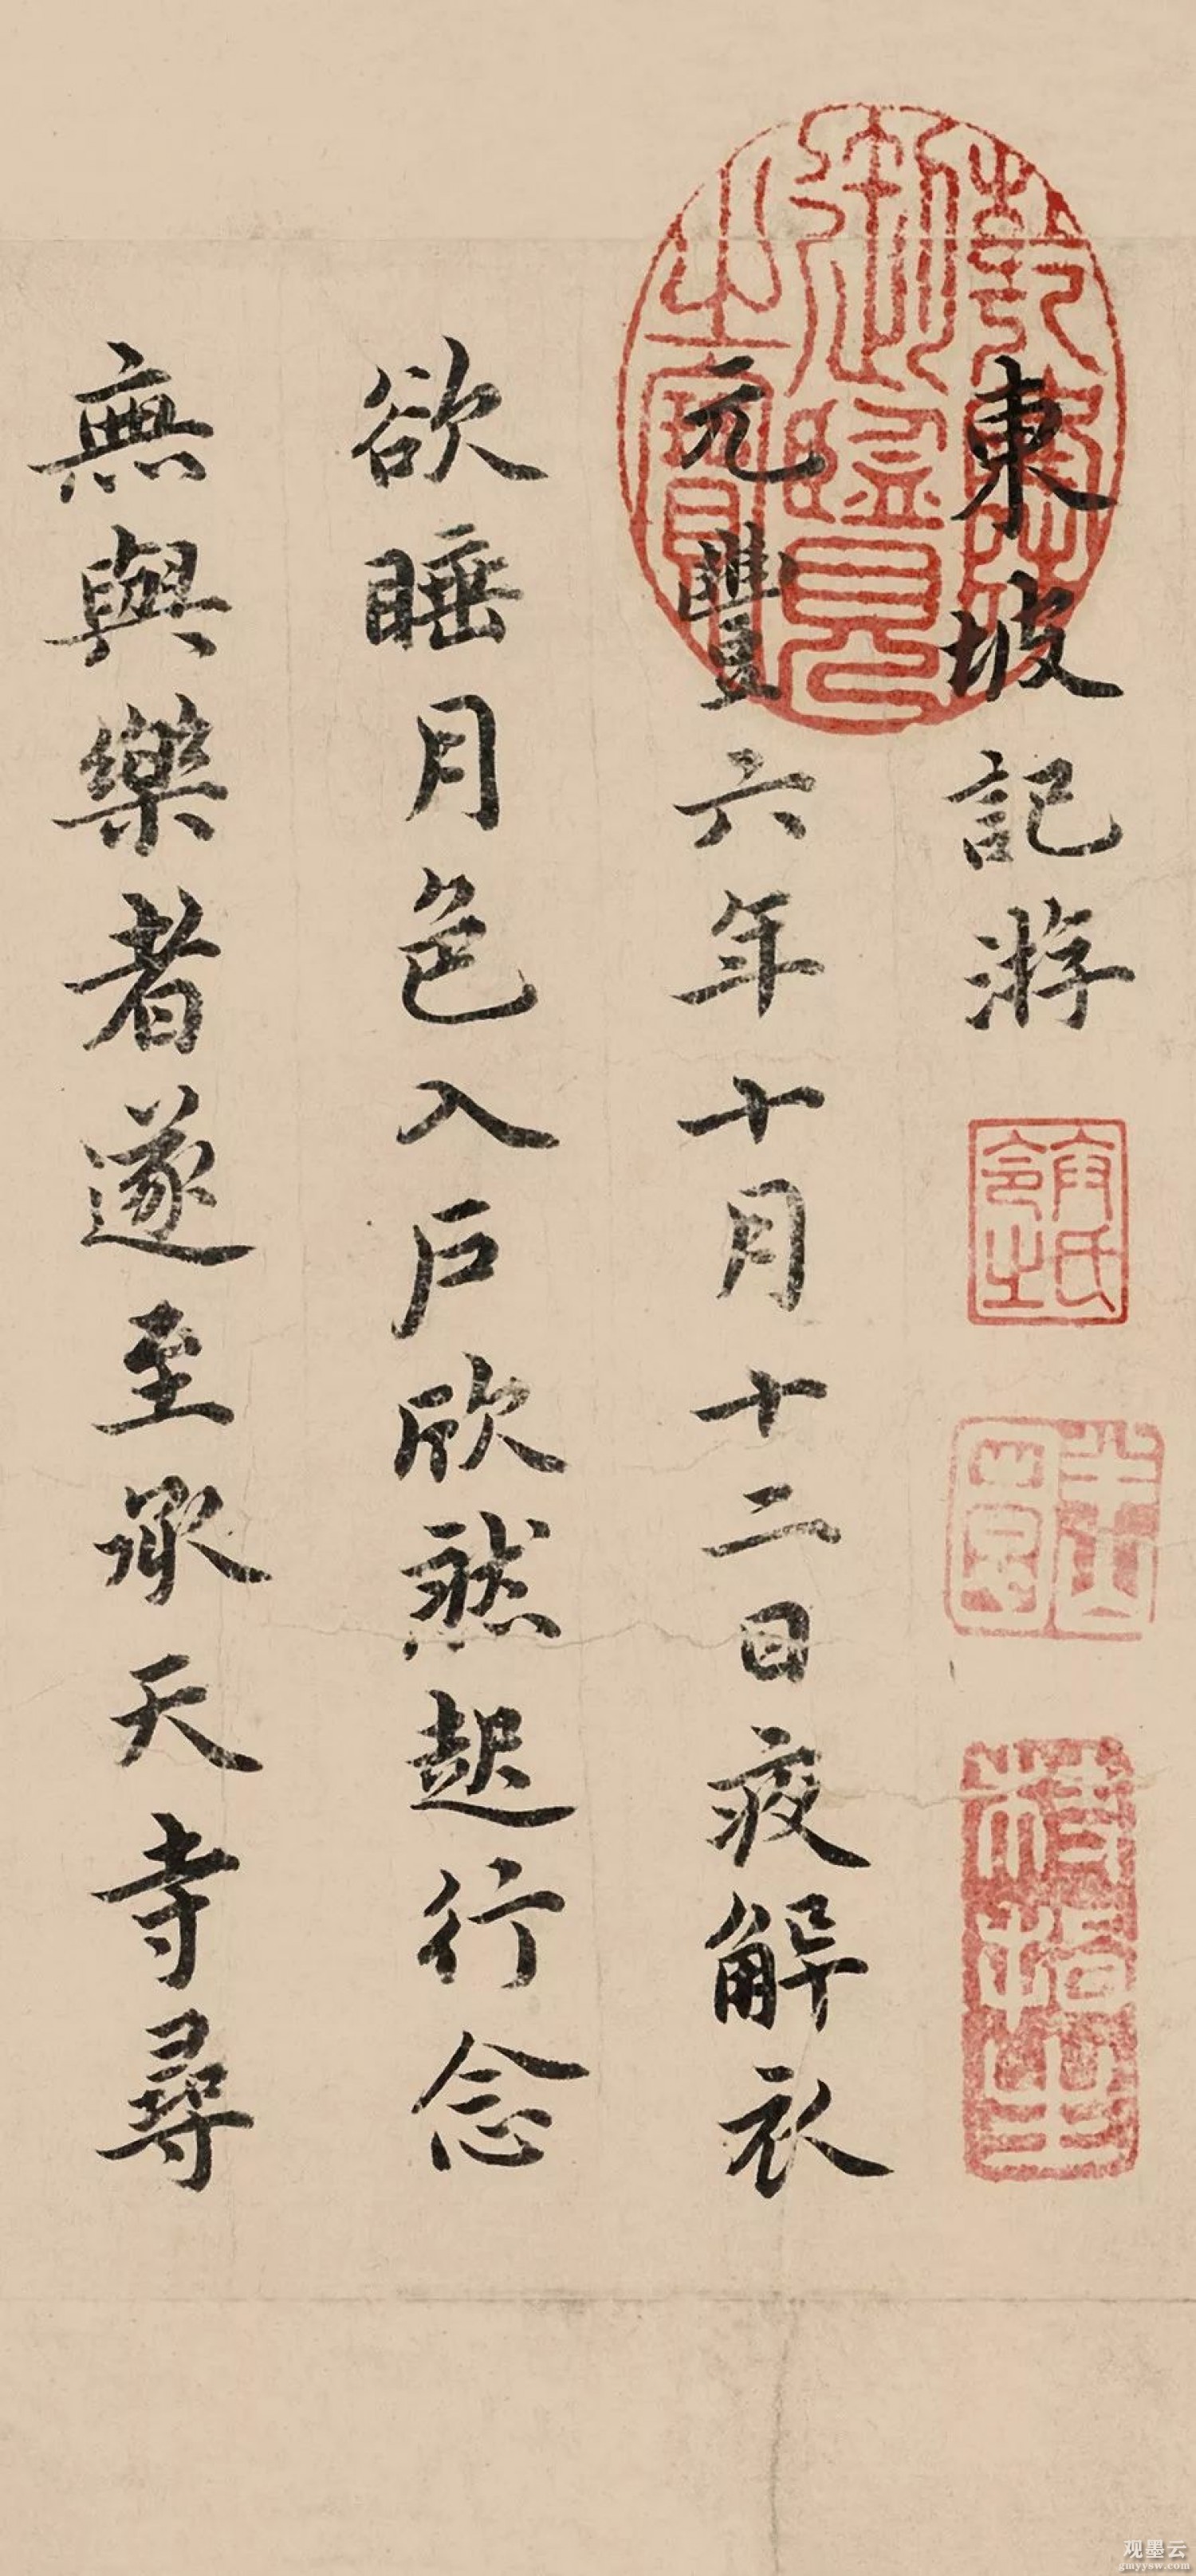 東坡記游
元豐六年十月十二日夜解衣
欲睡月色入戶欣然起行念
無與樂者遂至承天寺尋
乾隆御覽之寶
观墨云
gmyysw.com